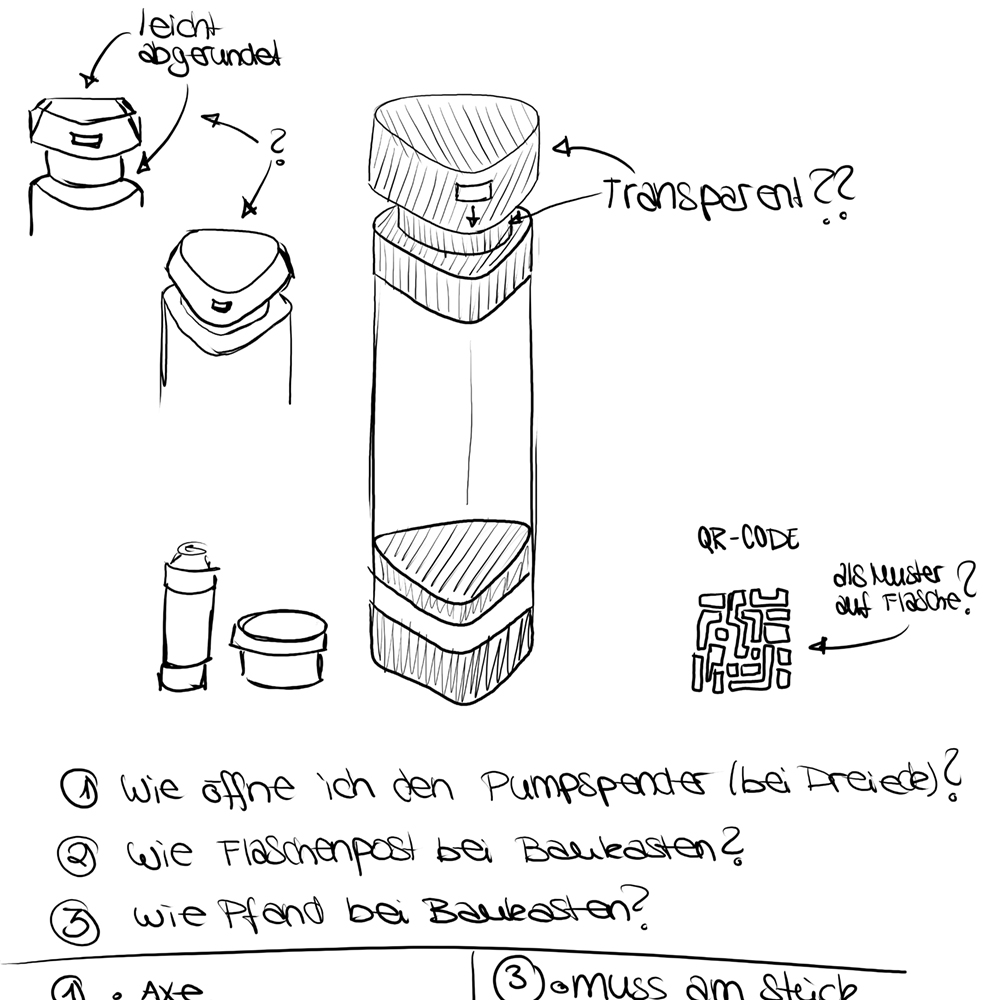 leicht
abgerundet
?
Transparent??
QR-CODE
als Muster
auf Flasche?
① Wie öffne ich den Pumpspender (bei Dreieck)?
② Wie Flaschenpost bei Baukasten?
③ Wie Pfand bei Baukasten?
① • Axe
③ • muss am Stück